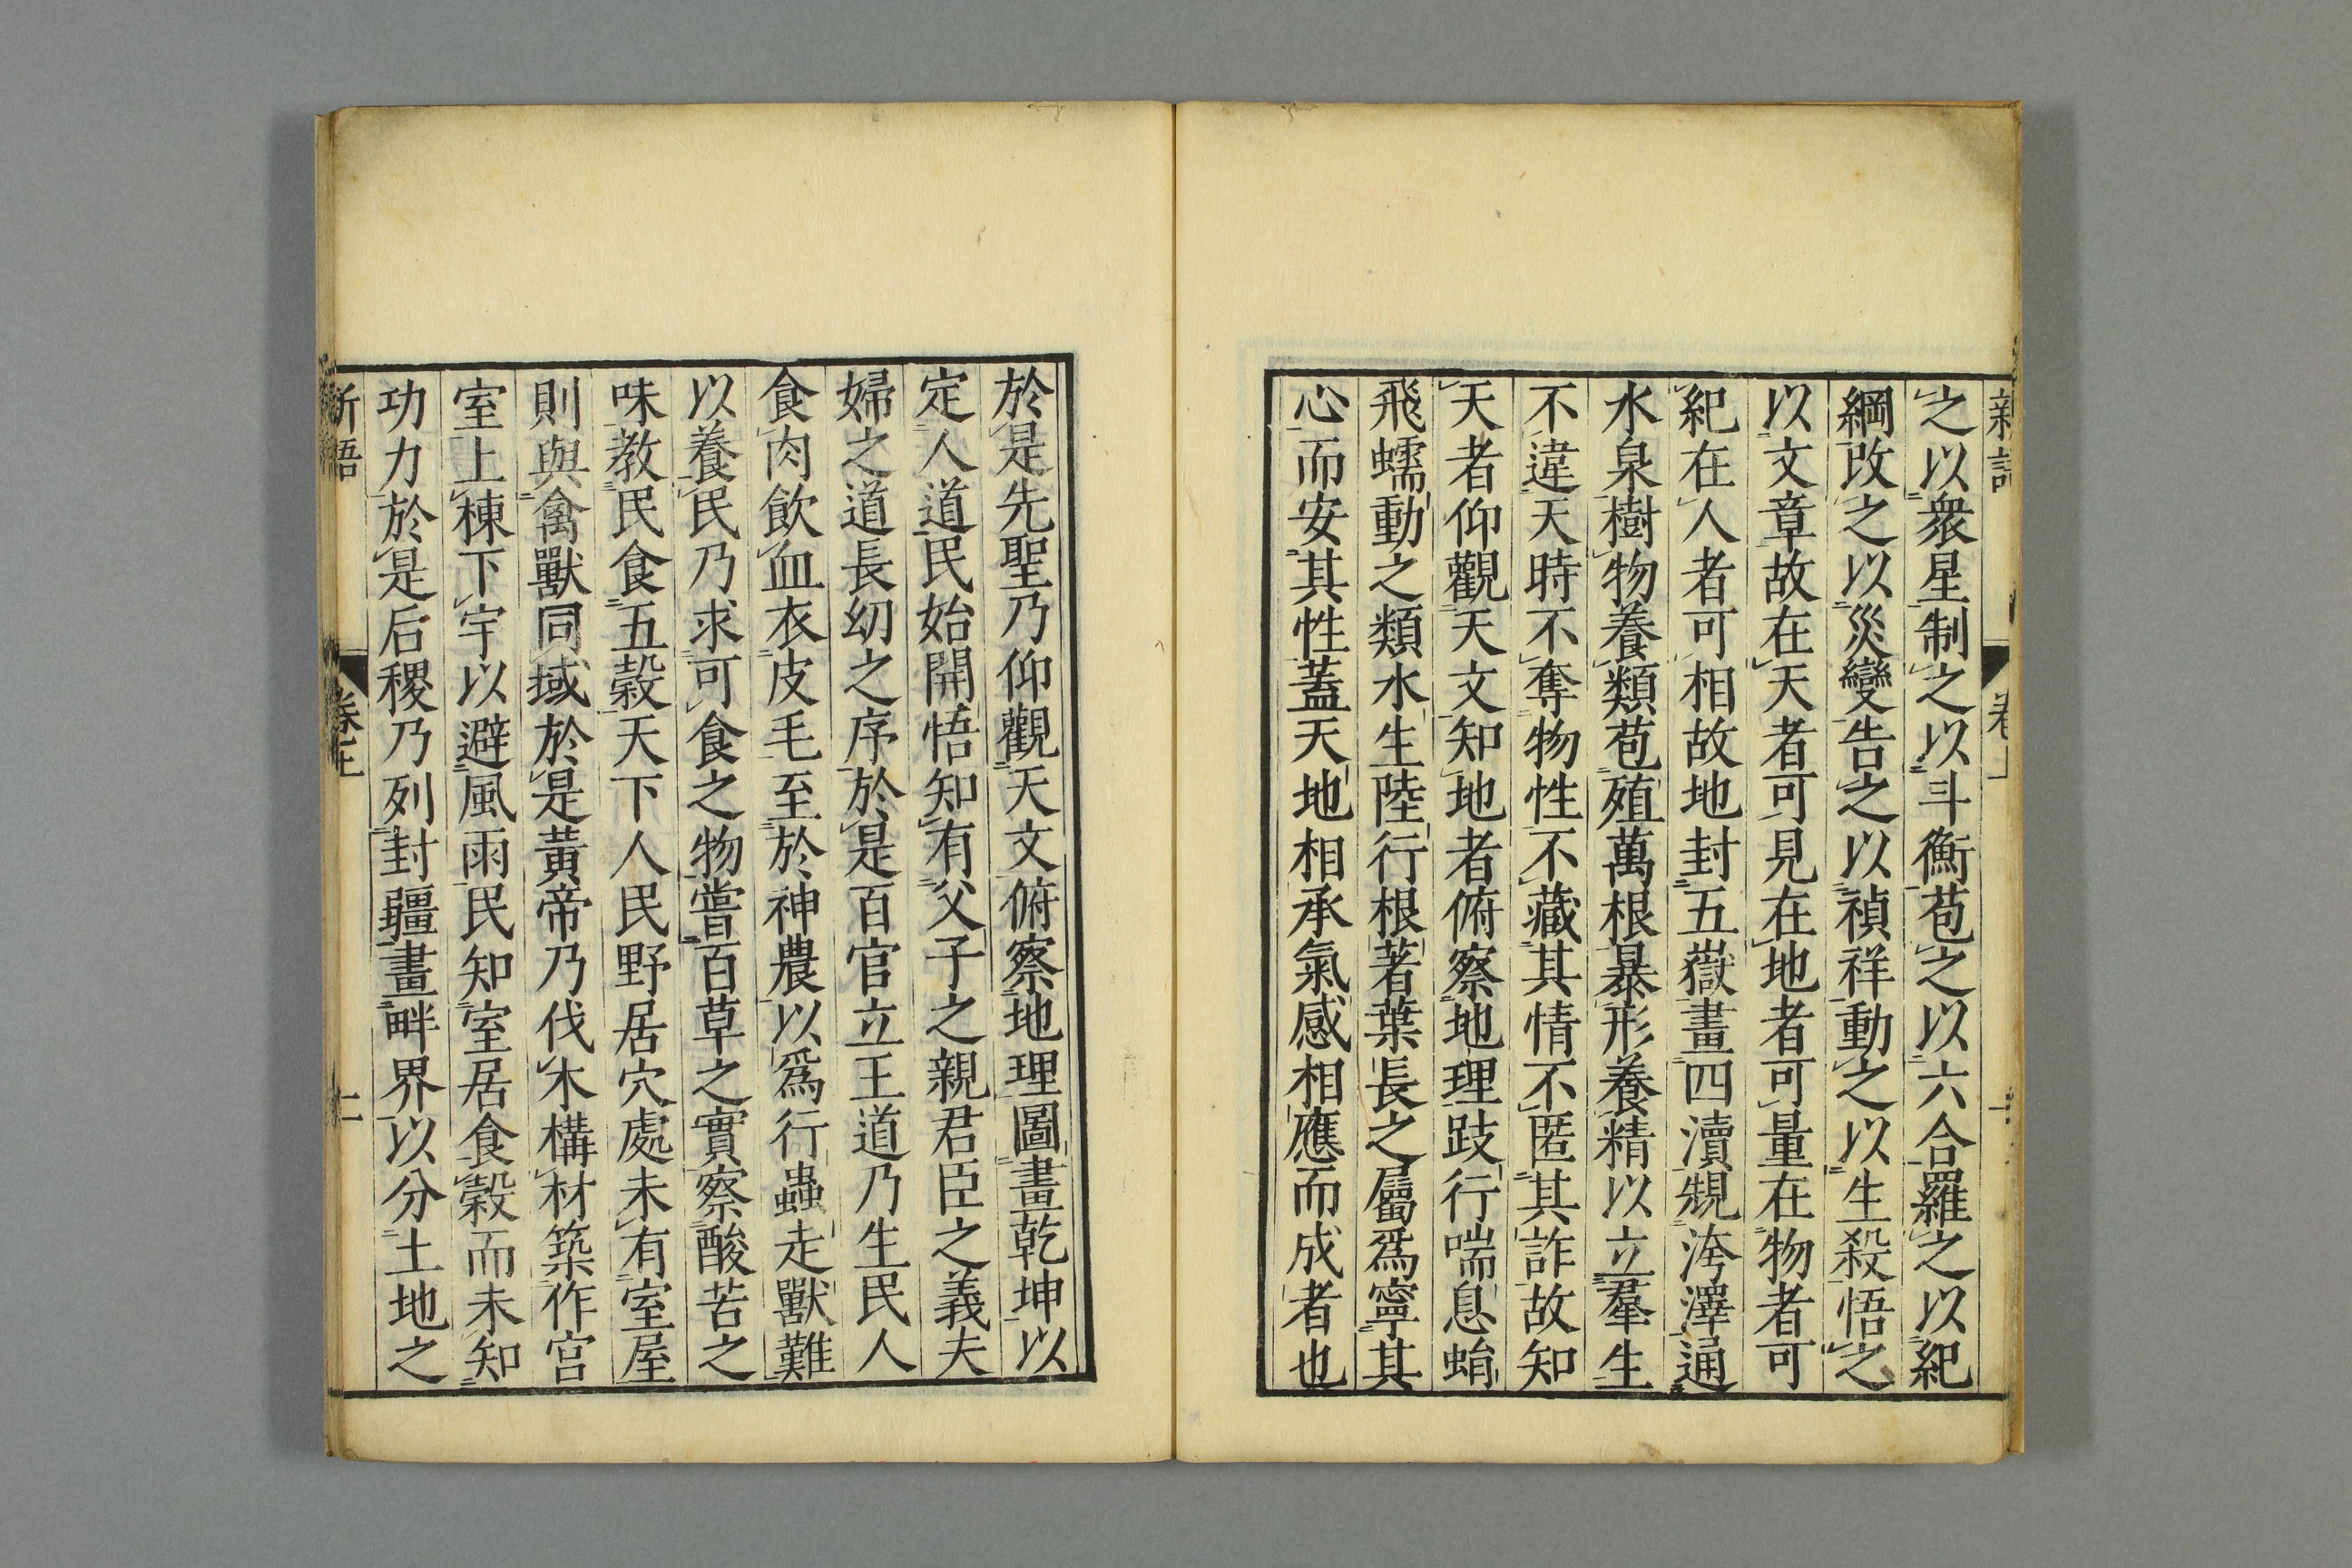 新語
卷上
之以衆星制之以斗衡苞之以六合羅之以紀
綱改之以災變告之以禎祥動之以生殺悟之
以文章故在天者可見在地者可量在物者可
紀在人者可相故地封五嶽畫四瀆規洿澤通
水泉樹物養類苞殖萬根暴形養精以立羣生
不違天時不奪物性不藏其情不匿其詐故知
天者仰觀天文知地者俯察地理跂行喘息蜎
飛蠕動之類水生陸行根著葉長之屬爲寧其
心而安其性蓋天地相承氣感相應而成者也
於是先聖乃仰觀天文俯察地理圖畫乾坤以
定人道民始開悟知有父子之親君臣之義夫
婦之道長幼之序於是百官立王道乃生民人
食肉飲血衣皮毛至於神農以爲行蟲走獸難
以養民乃求可食之物嘗百草之實察酸苦之
味教民食五穀天下人民野居穴處未有室屋
則與禽獸同域於是黃帝乃伐木構材築作宮
室上棟下宇以避風雨民知室居食穀而未知
功力於是后稷乃列封疆畫畔界以分土地之
新語
卷上
二